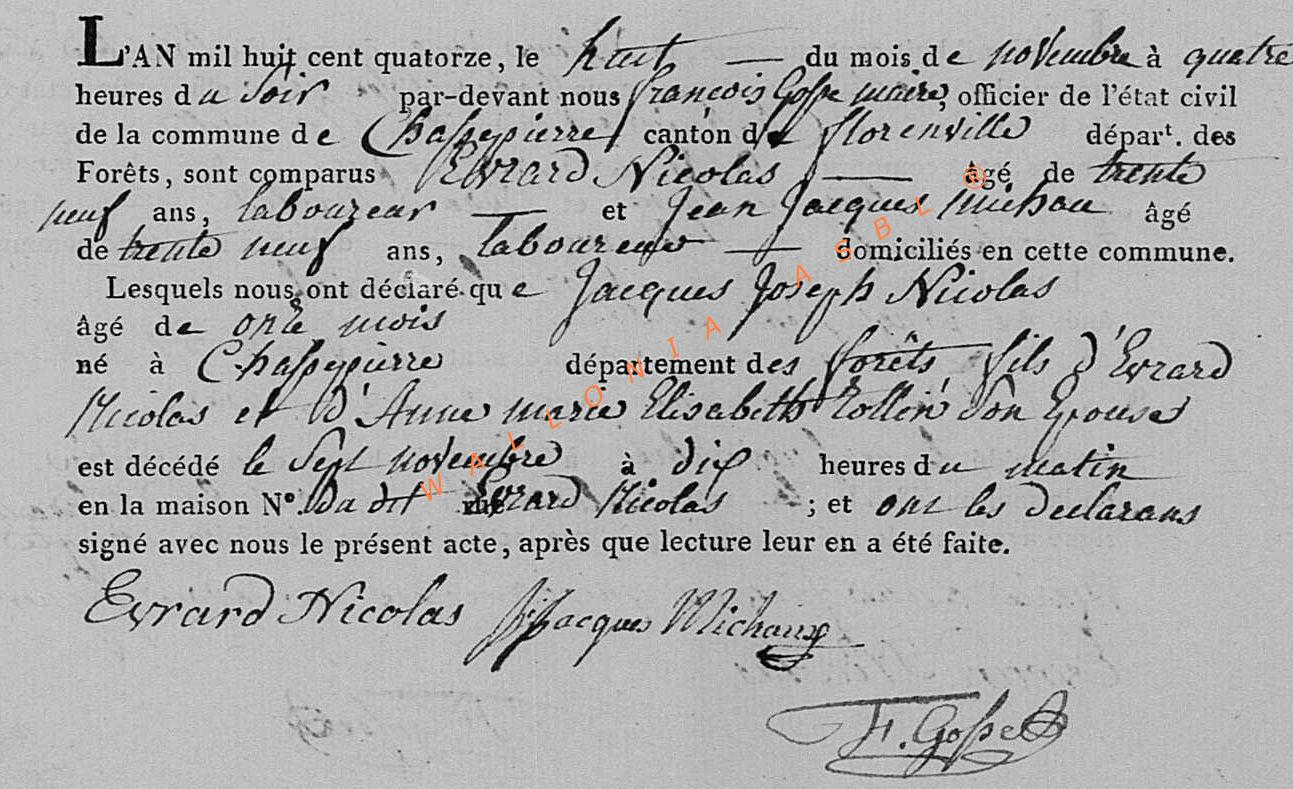 L'AN mil huit cent quatorze, le huit du mois de novembre à quatre
heures du Soir par-devant nous françois Gosse maire, officier de l'état civil
de la commune de Chassepierre canton de florenville départ. des
Forêts, sont comparus Evrard Nicolas âgé de trente
neuf ans, laboureur et Jean Jacques Michau âgé
de trente neuf ans, laboureur domiciliés en cette commune.
Lesquels nous ont déclaré que Jacques Joseph Nicolas
âgé de onze mois
né à Chassepierre département des forêts fils d'Evrard
Nicolas et d'Anne marie Elisabeth Son Epouse
est décédé le Sept novembre à dix heures du matin
en la maison N°. du dit rue Evrard Nicolas ; et ont les declarans
signé avec nous le présent acte, après que lecture leur en a été faite.
Evrard Nicolas Jacques Michaux
F. Gosse
WALLONIA ASBL ®